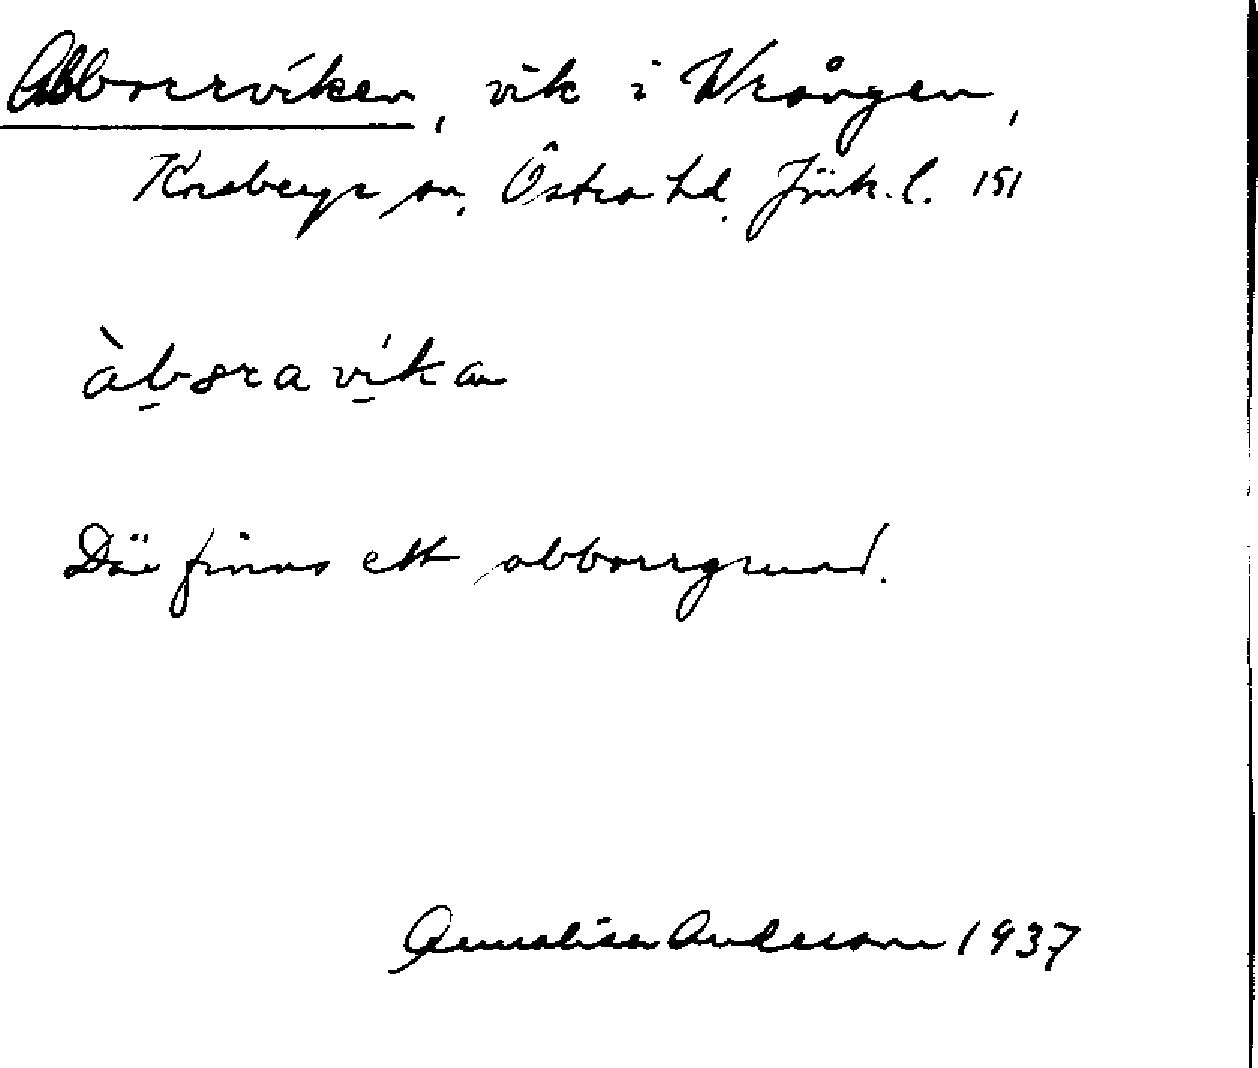 Abborrviken, vik i Wrången,
Korsberga sn, Östra hd. Jönk. l. 151
àbsravíkan
Där finns ett abborrgrund.
Annalisa Andersson 1937